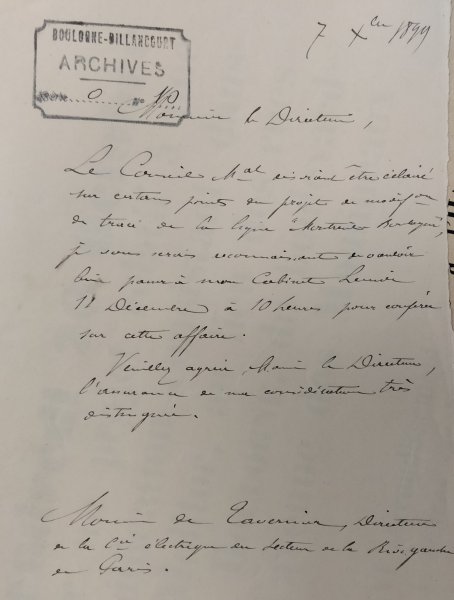 BOULOGNE-BILLANCOURT
ARCHIVES
7 Xbre 1899
Monsieur le Directeur,
Le Conseil Mal désirant être éclairé
sur certains points du projet de modifon
de tracé de la ligne "Montreuil Boulogne",
je vous serais reconnaissant de vouloir
bien passer à mon Cabinet Lundi
11 Décembre à 10 heures pour conférer
sur cette affaire.
Veuillez agréer, Monsieur le Directeur,
l'assurance de ma considération très
distinguée.
Monsieur de Tavernier, Directeur
de la Cie électrique du Secteur de la Rive gauche
de Paris.